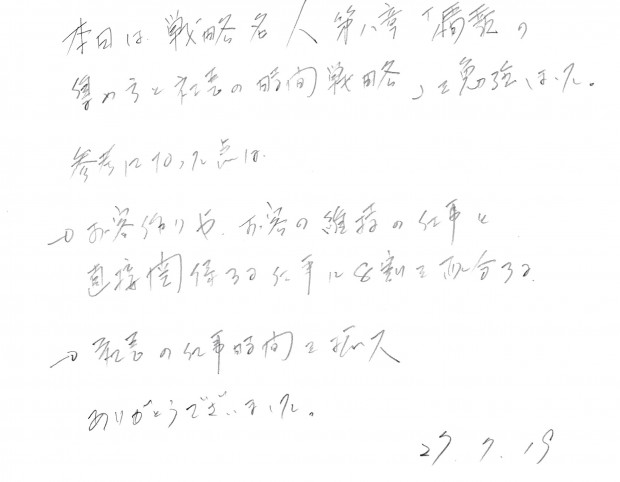 本日は戦略名人第六章「情報の
集め方と社長の時間戦略」を勉強しました。
参考になった点は
→お客作りや、お客の維持の仕事と
直接関係する仕事に8割を配分する。
→社長の仕事時間を拡大
ありがとうございました。
27.7.15